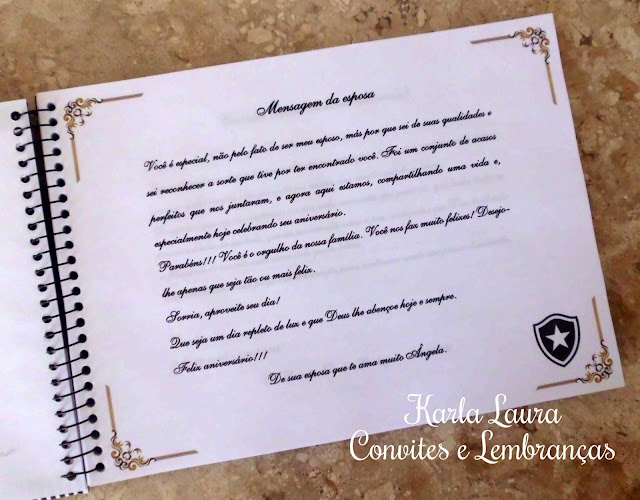 Mensagem da esposa
Você é especial, não pelo fato de ser meu esposo, más por que sei de suas qualidades e
sei reconhecer a sorte que tive por ter encontrado você. Foi um conjunto de acasos
perfeitos que nos juntaram, e agora aqui estamos, compartilhando uma vida e,
especialmente hoje celebrando seu aniversário.
Parabéns!!! Você é o orgulho da nossa família. Você nos faz muito felizes! Desejo-
lhe apenas que seja tão ou mais feliz.
Sorria, aproveite seu dia!
Que seja um dia repleto de luz e que Deus lhe abençoe hoje e sempre.
Feliz aniversário!!!
De sua esposa que te ama muito Ângela.
Karla Laura
Convites e Lembranças